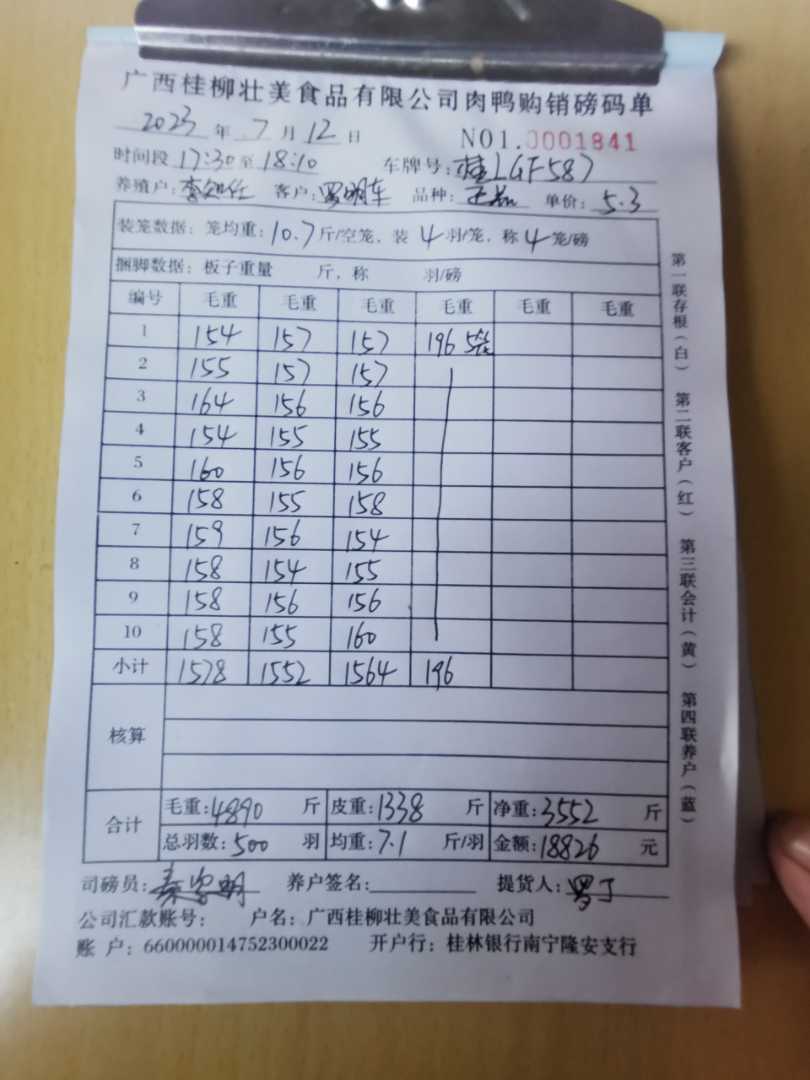 广西桂柳壮美食品有限公司肉鸭购销磅码单
2023 年 7 月 12 日 NO1.0001841
时间段 17:30 至 18:10 车牌号: 桂LGF587
养殖户: 客户: 罗明车 品种: 单价: 5.3
装笼数据: 笼均重: 10.7 斤/空笼, 装 4 羽/笼, 称 4 笼/磅
捆脚数据: 板子重量 斤, 称 羽/磅
编号 毛重 毛重 毛重 毛重 毛重 毛重
1 154 157 157 196 5笼
2 155 157 157
3 164 156 156
4 154 155 155
5 160 156 156
6 158 155 158
7 159 156 154
8 158 154 155
9 158 156 156
10 158 155 160
小计 1578 1552 1564 196
核算
合计 毛重: 4890 斤 皮重: 1338 斤 净重: 3552 斤
总羽数: 500 羽 均重: 7.1 斤/羽 金额: 18826 元
司磅员: 养户签名: 提货人: 罗丁
公司汇款账号: 户名: 广西桂柳壮美食品有限公司
账 户: 660000014752300022 开户行: 桂林银行南宁隆安支行
第一联存根(白) 第二联客户(红) 第三联会计(黄) 第四联养户(蓝)